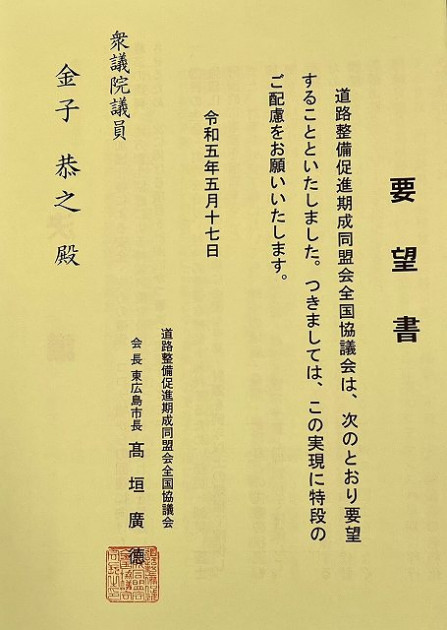 要望書
道路整備促進期成同盟会全国協議会は、次のとおり要望
することといたしました。つきましては、この実現に特段の
ご配慮をお願いいたします。
令和五年五月十七日
道路整備促進期成同盟会全国協議会
会長 東広島市長 髙垣廣德
衆議院議員
金子恭之殿